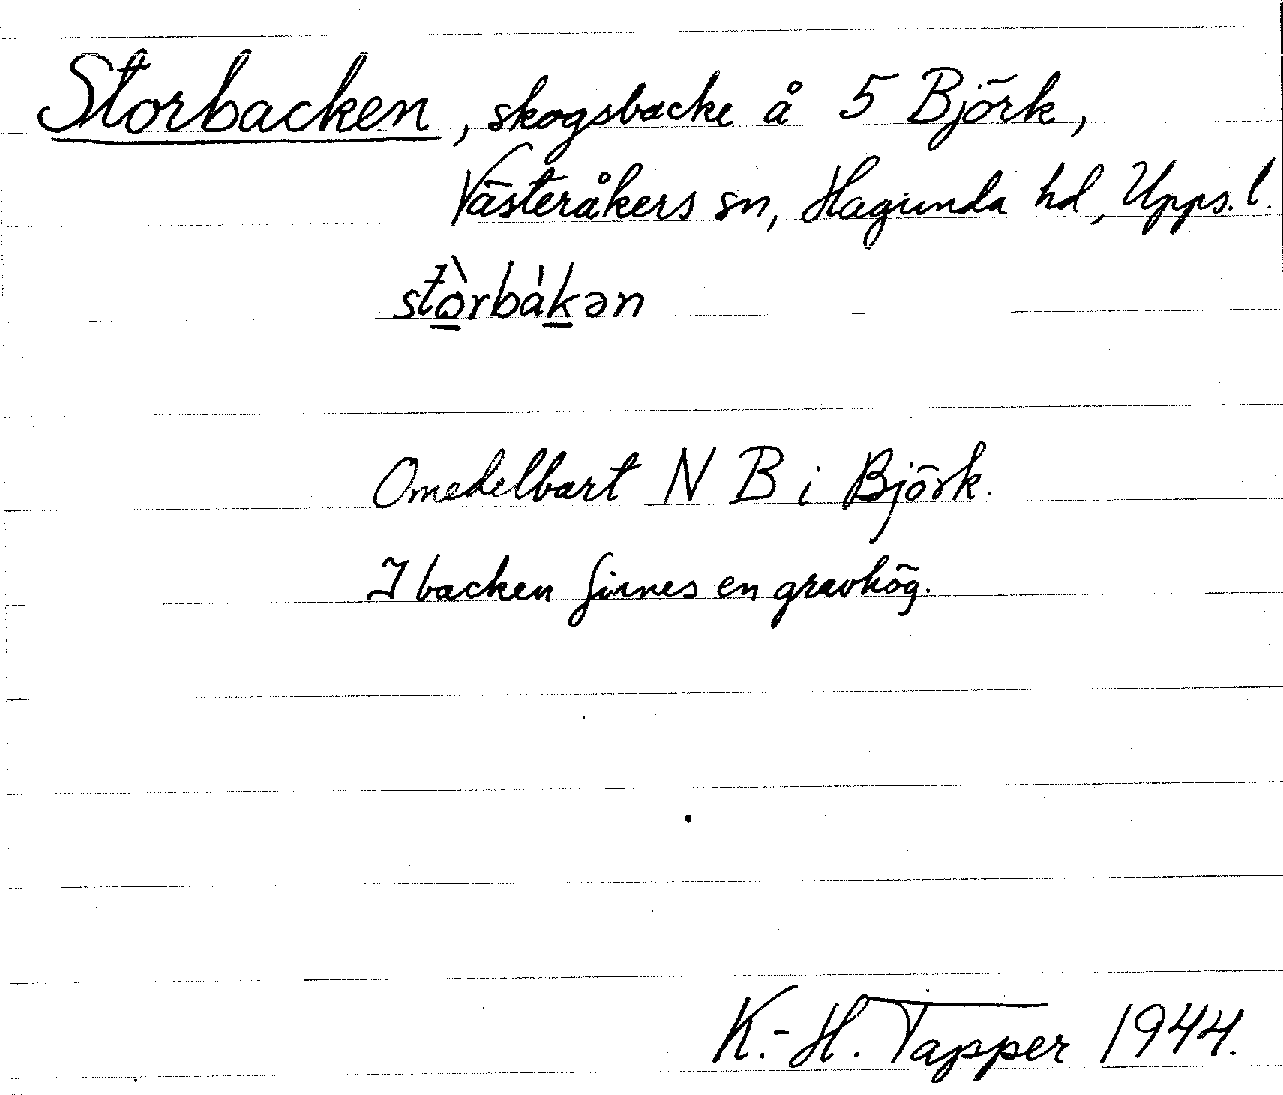 Storbacken, skogsbacke å 5 Björk,
Västeråkers sn, Hagunda hd, Upps. l.
stòrbákən
Omedelbart N B i Björk.
I backen finnes en gravhög.
K.-H. Tapper 1944.